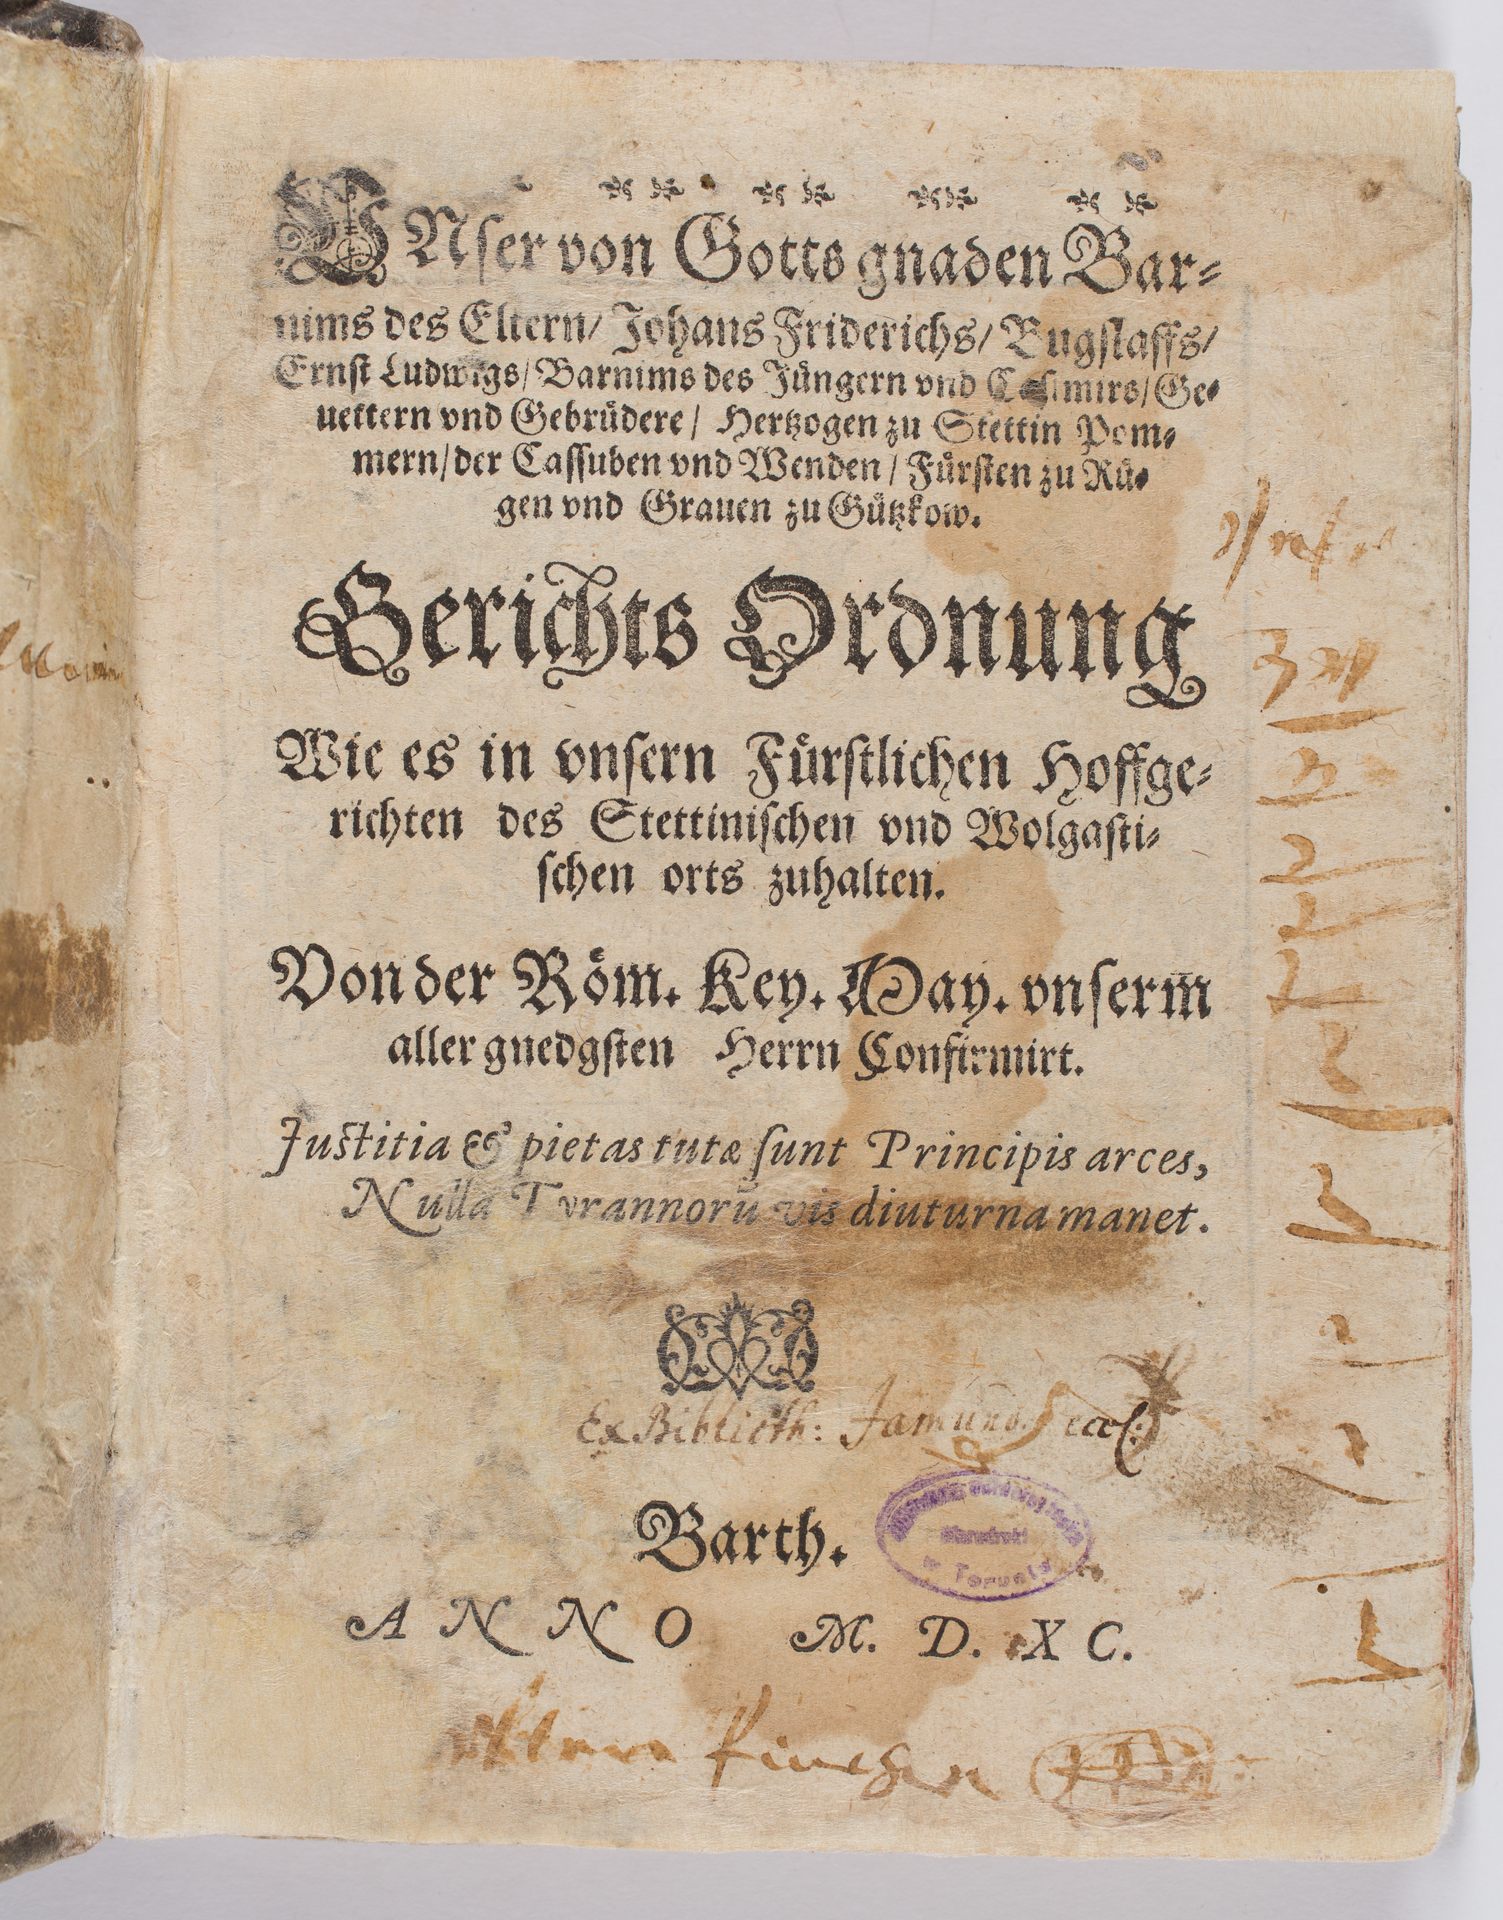 VNser von Gotts gnaden Bar-
nims des Eltern/ Johans Friderichs/ Bugslaffs/
Ernst Ludwigs/ Barnims des Jüngern vnd Casimirs/ Ge-
uettern vnd Gebrüdere/ Hertzogen zu Stettin Pom-
mern/ der Cassuben vnd Wenden/ Fürsten zu Rü-
gen vnd Grauen zu Gützkow.
Gerichts Ordnung
Wie es in vnsern Fürstlichen Hoffge-
richten des Stettinischen vnd Wolgasti-
schen orts zuhalten.
Von der Röm. Key. May. vnserm̄
aller gnedgsten Herrn Confirmirt.
Justitia & pietas tutæ sunt Principis arces,
Nulla Tyrannorū vis diuturna manet.
Ex Biblioth: Jamund. Eccl:
Barth.
w Toruniu
ANNO M. D. XC.